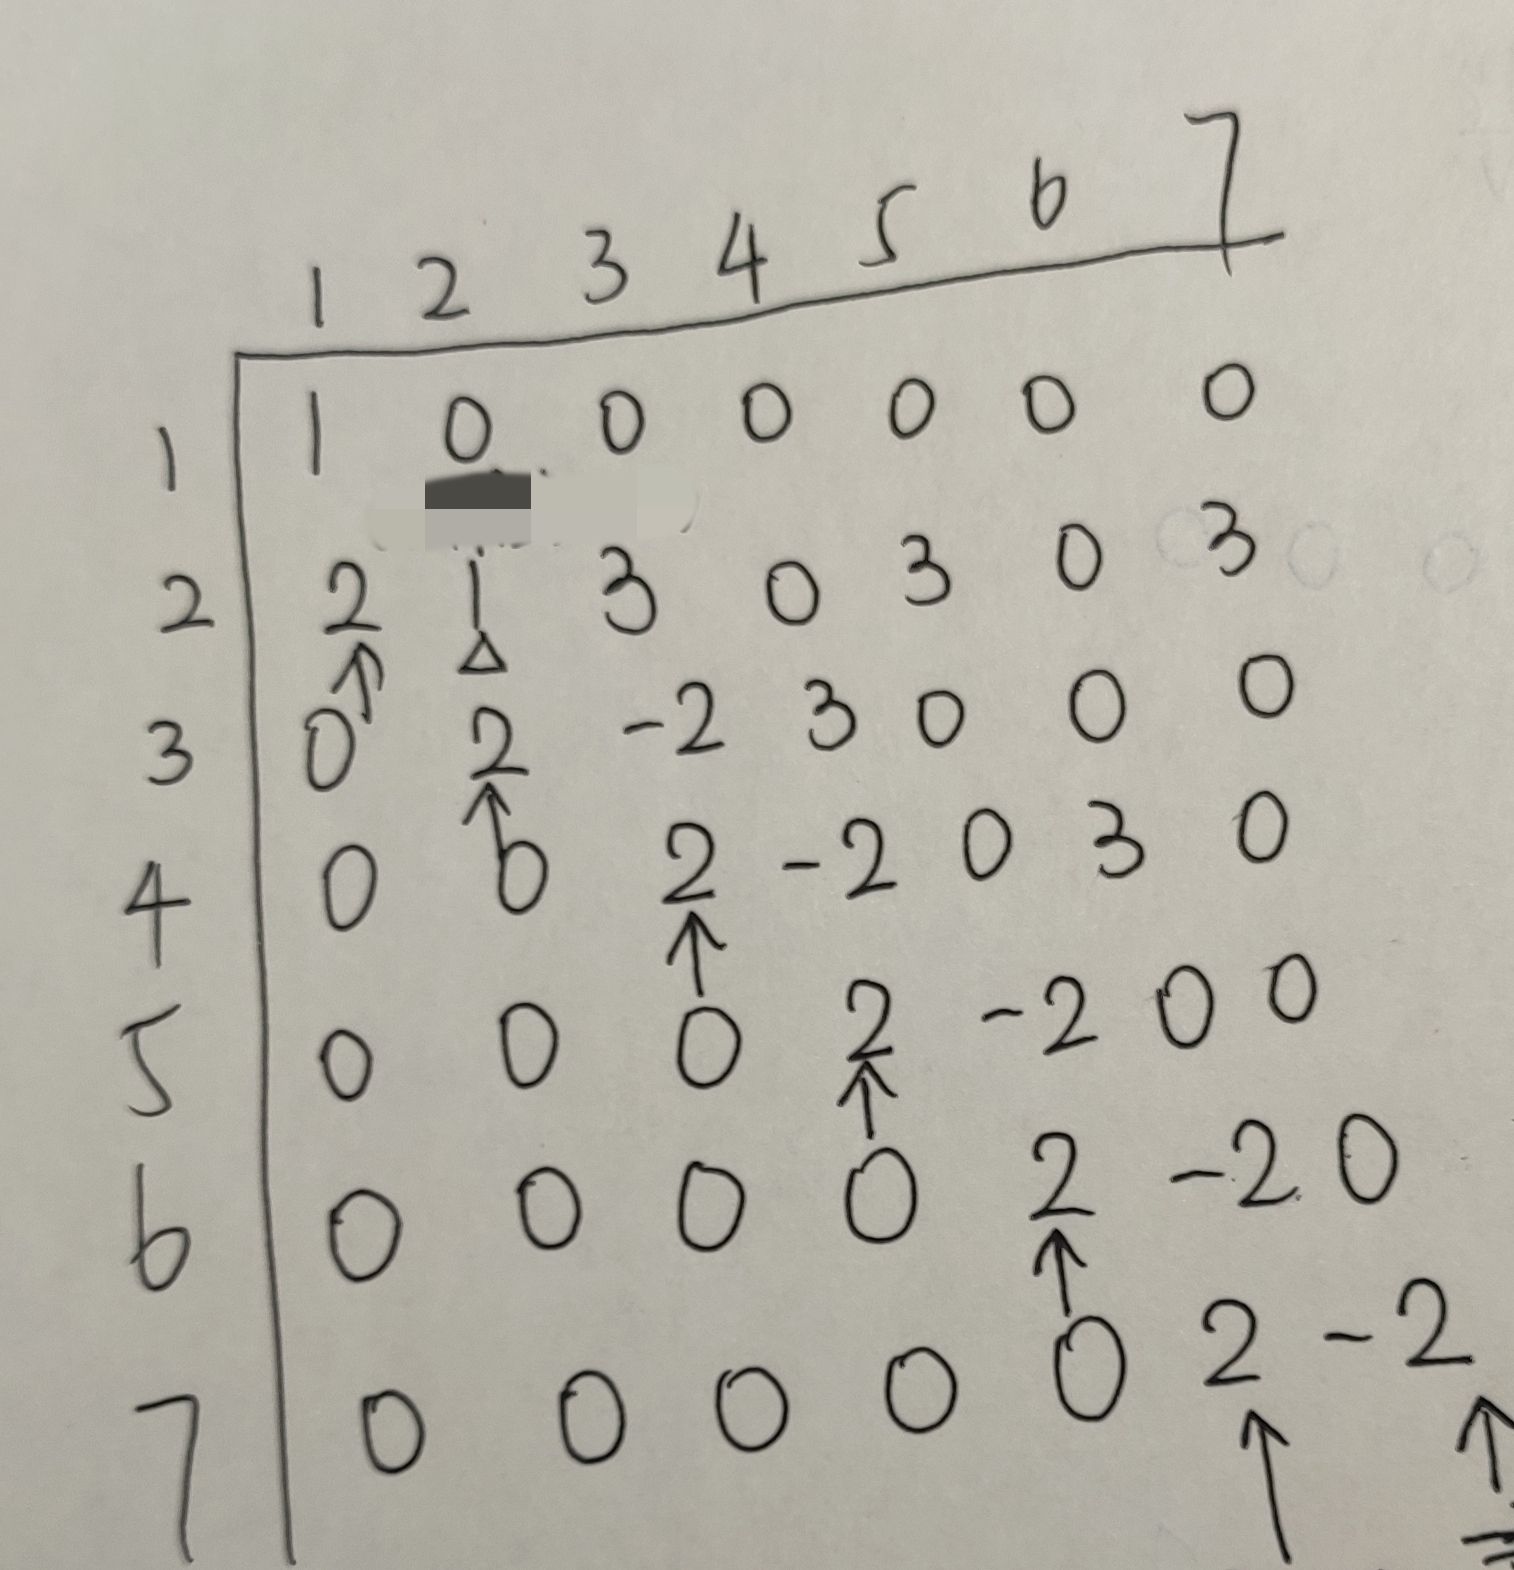 1 2 3 4 5 6 7
1 1 0 0 0 0 0 0
2 2 1 3 0 3 0 3
3 0 2 -2 3 0 0 0
4 0 0 2 -2 0 3 0
5 0 0 0 2 -2 0 0
6 0 0 0 0 2 -2 0
7 0 0 0 0 0 2 -2